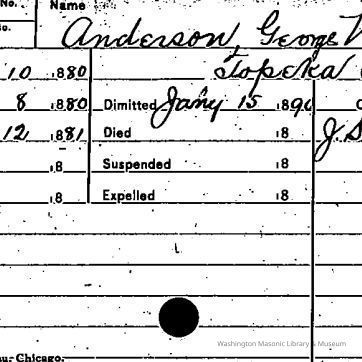 No. Name
Anderson, George W
Topeka
10 1880
8 1880 Dimitted Jany 15 1890
12 1881 Died 18
18 Suspended 18
18 Expelled 18
Washington Masonic Library & Museum
Chicago.